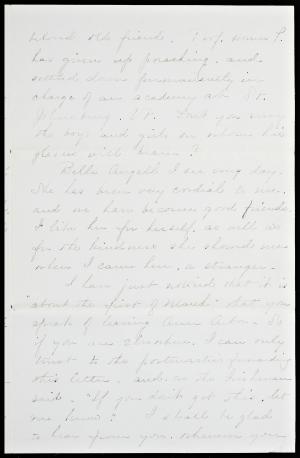 old friends. Prof.
has given up preaching, and
settled down permanently in
charge of an academy at St.
Johnsbury, Vt. Don't you envy
the boys and girls on whom his
will
Bella Angell I see every day.
She has been very cordial to me,
and we have become good friends.
I like her for herself, as well as
for the kindness she showed me
when I came here, a stranger.
I have just noticed that it is
"about the first of March" that you
speak of leaving Ann Arbor. So
if you are elsewhere, I can only
trust to the postmaster's
this letter, and, as the Irishman
said, "If you don't get this, let
me know." I shall be glad
to hear from you, wherever you